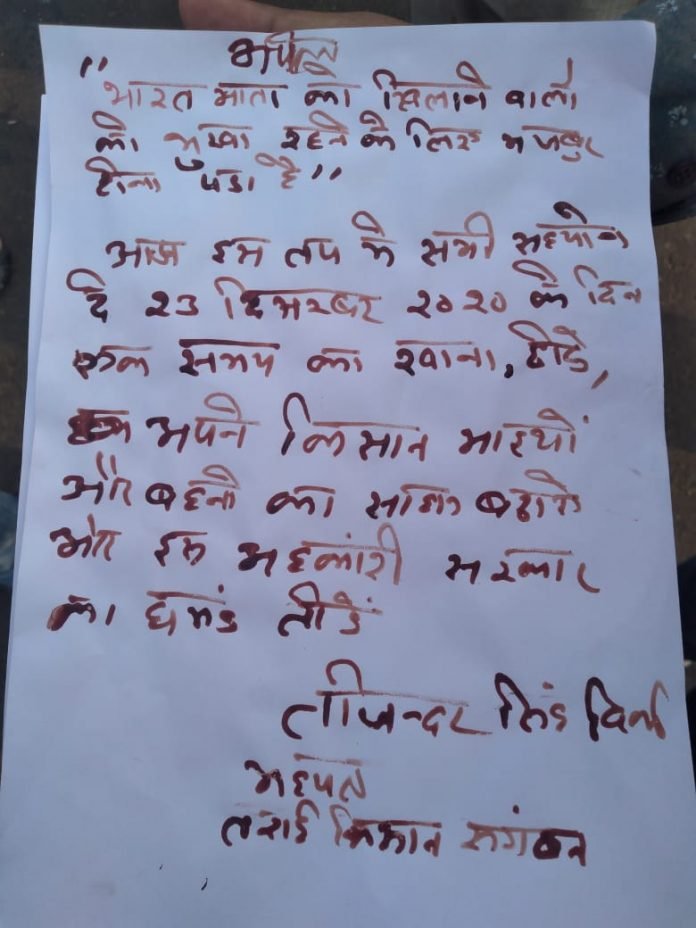 अपिल
"भारत माता को खिलाने वालो
को भुखा रहने के लिए मजबुर
होना पडा है"
आज इस तप मे सभी सहयोग
दे 23 दिसम्बर 2020 के दिन
एक समय का खाना, छोडे,
अपने किसान भाइयों
और बहनो का साहस बढाऐ
और इस अहकांरी सरकार
का घमंड तोडें
तजिन्दर सिंह विर्क
अध्यक्ष
तराई किसान संगठन